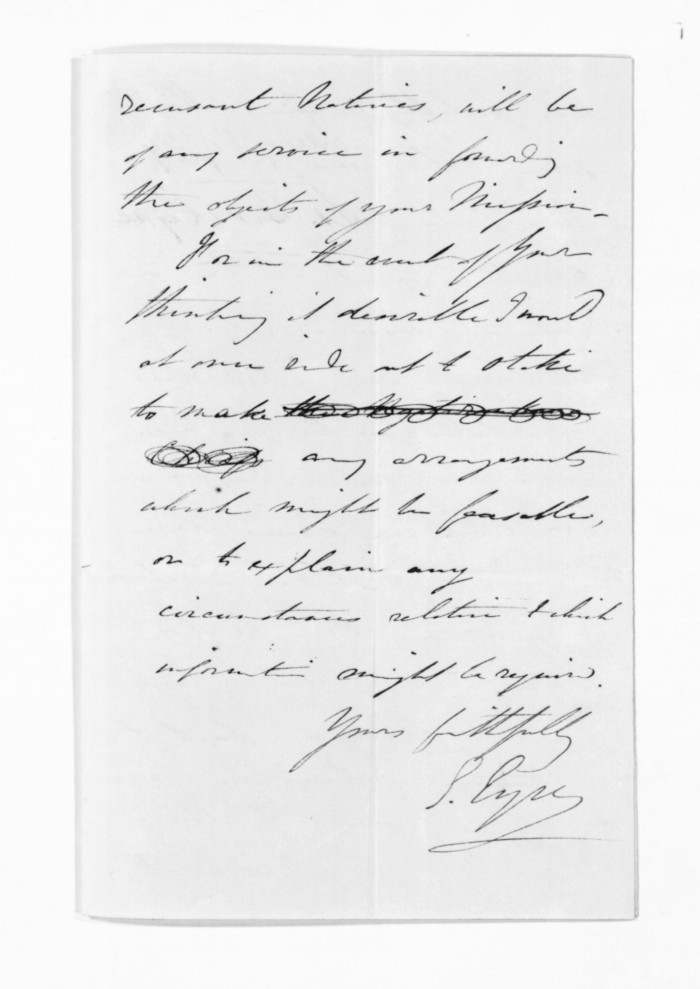 recusant Natives, will be
of any service in forwarding
the objects of your Mission –
For in the event of your
thinking it desirable I would
at once ride out to Otaki
to make
any arrangements
which might be feasable,
or to explain any
circumstances relative to which
information might be required.
Yours faithfully
E. Eyre